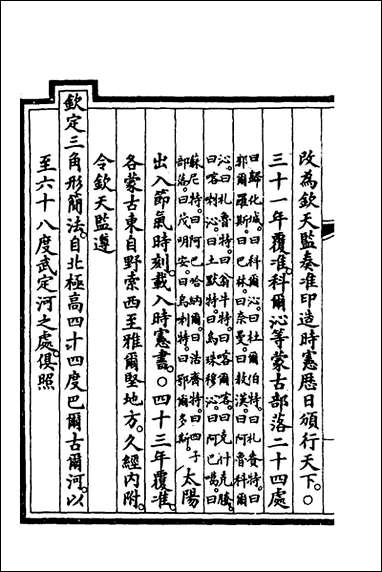 改為欽天監奏准印造時憲歴日頒行天下。○
三十一年覆准。科爾沁等蒙古部落二十四處
曰歸化城。曰科爾沁。曰杜爾伯特。曰札賚特。曰
郭爾羅斯。曰巴林。曰奈曼。曰敖漢。曰阿魯科爾
沁。曰札魯特。曰翁牛特。曰喀爾喀。曰克什克騰。
曰喀喇沁。曰土默特。曰烏珠穆沁。曰阿巴噶。曰
蘇尼特。曰阿巴哈納爾。曰浩齊特。曰四子
部落。曰茂明安。曰烏喇特。曰鄂爾多斯。
太陽
出入節氣時刻。載入時憲書。○四十三年覆准。
各蒙古東自野索西至雅爾堅地方。久經内附。
令欽天監遵
欽定三角形簡法。自北極高四十四度巴爾古爾河。以
至六十八度武定河之處。俱照